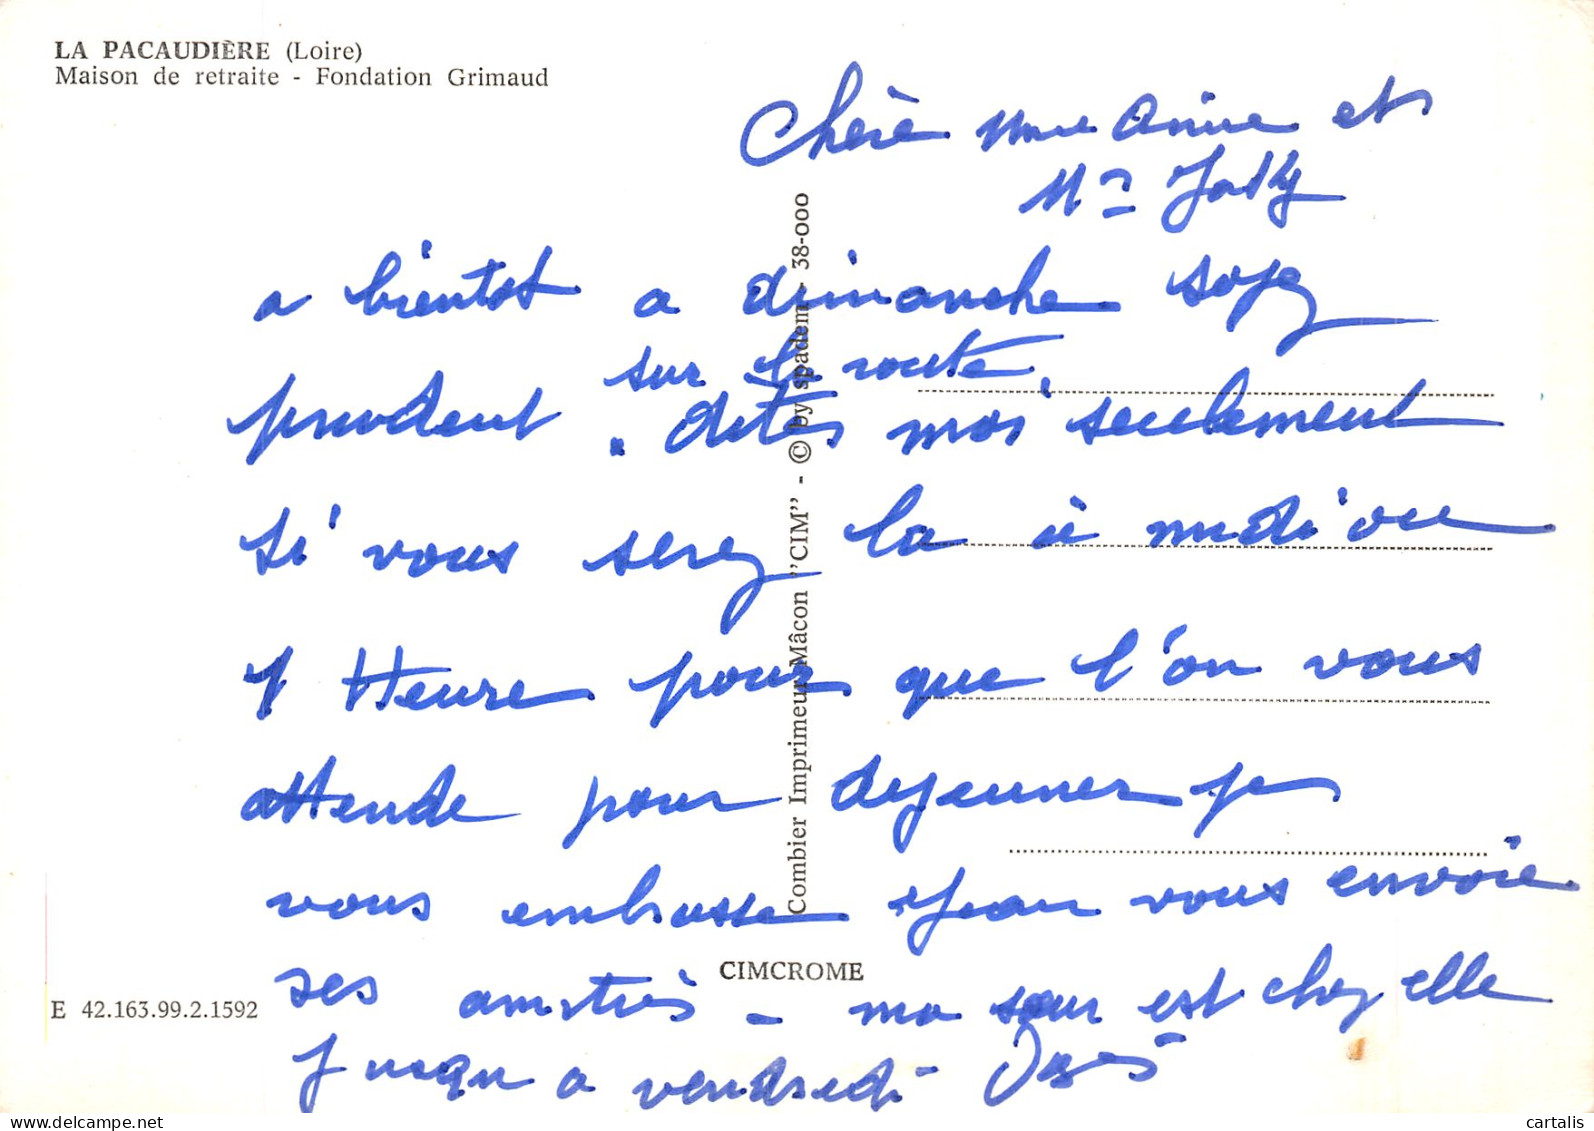 LA PACAUDIÈRE (Loire)
Maison de retraite - Fondation Grimaud
Chère Mme Anive et
Mr Jolly
a bientot a dimanche soyez
sur la route.
prudent . dites moi seulement
si vous serez la à midi ou
1 Heure pour que l'on vous
attende pour dejeuner je
vous embrasse Jean vous envoie
ses amitiès - ma sœur est chez elle
Jusqu a vendredi -
CIMCROME
E 42.163.99.2.1592
Combier Imprimeur Mâcon "CIM" - © by spadem - 38-000
cartalis